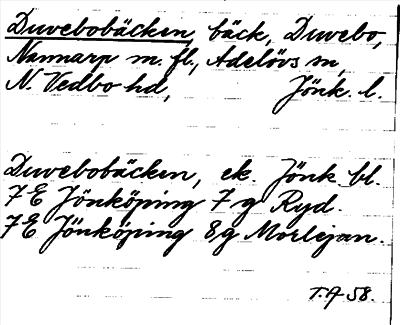 Duvebobäcken, bäck, Duvebo,
Nannarp m. fl., Adelövs sn,
N. Vedbo hd, Jönk. l.
Duvebobäcken, ek. Jönk. bl.
7 E Jönköping 7 g Ryd.
7 E Jönköping 8 g Morlejan.
T. A 58.